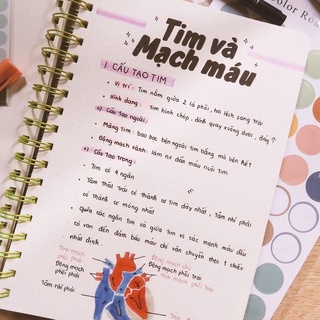 Tim và
Mạch máu
1 CẤU TẠO TIM
• Vị trí: Tim nằm giữa 2 lá phổi, hơi lệch sang trái
• Hình dạng: Tim hình chóp, đỉnh quay xuống dưới, đáy ↑
a) Cấu tạo ngoài:
• Màng tim: bao bọc bên ngoài tim bằng mô liên kết
• Động mạch vành: làm n.v dẫn máu nuôi tim
b) Cấu tạo trong:
• Tim có 4 ngăn
• Tâm thất trái có thành cơ tim dày nhất, Tâm nhĩ phải
có thành cơ mỏng nhất
• Giữa các ngăn tim và giữa tim vs các mạch máu đều
có van để đảm bảo máu chỉ vận chuyển theo 1 chiều
nhất định.
Tĩnh mạch
phổi phải
Động mạch chủ
Động mạch
phổi phải
Động mạch phổi trái
Tĩnh mạch phổi trái
Tâm nhĩ phải
Color